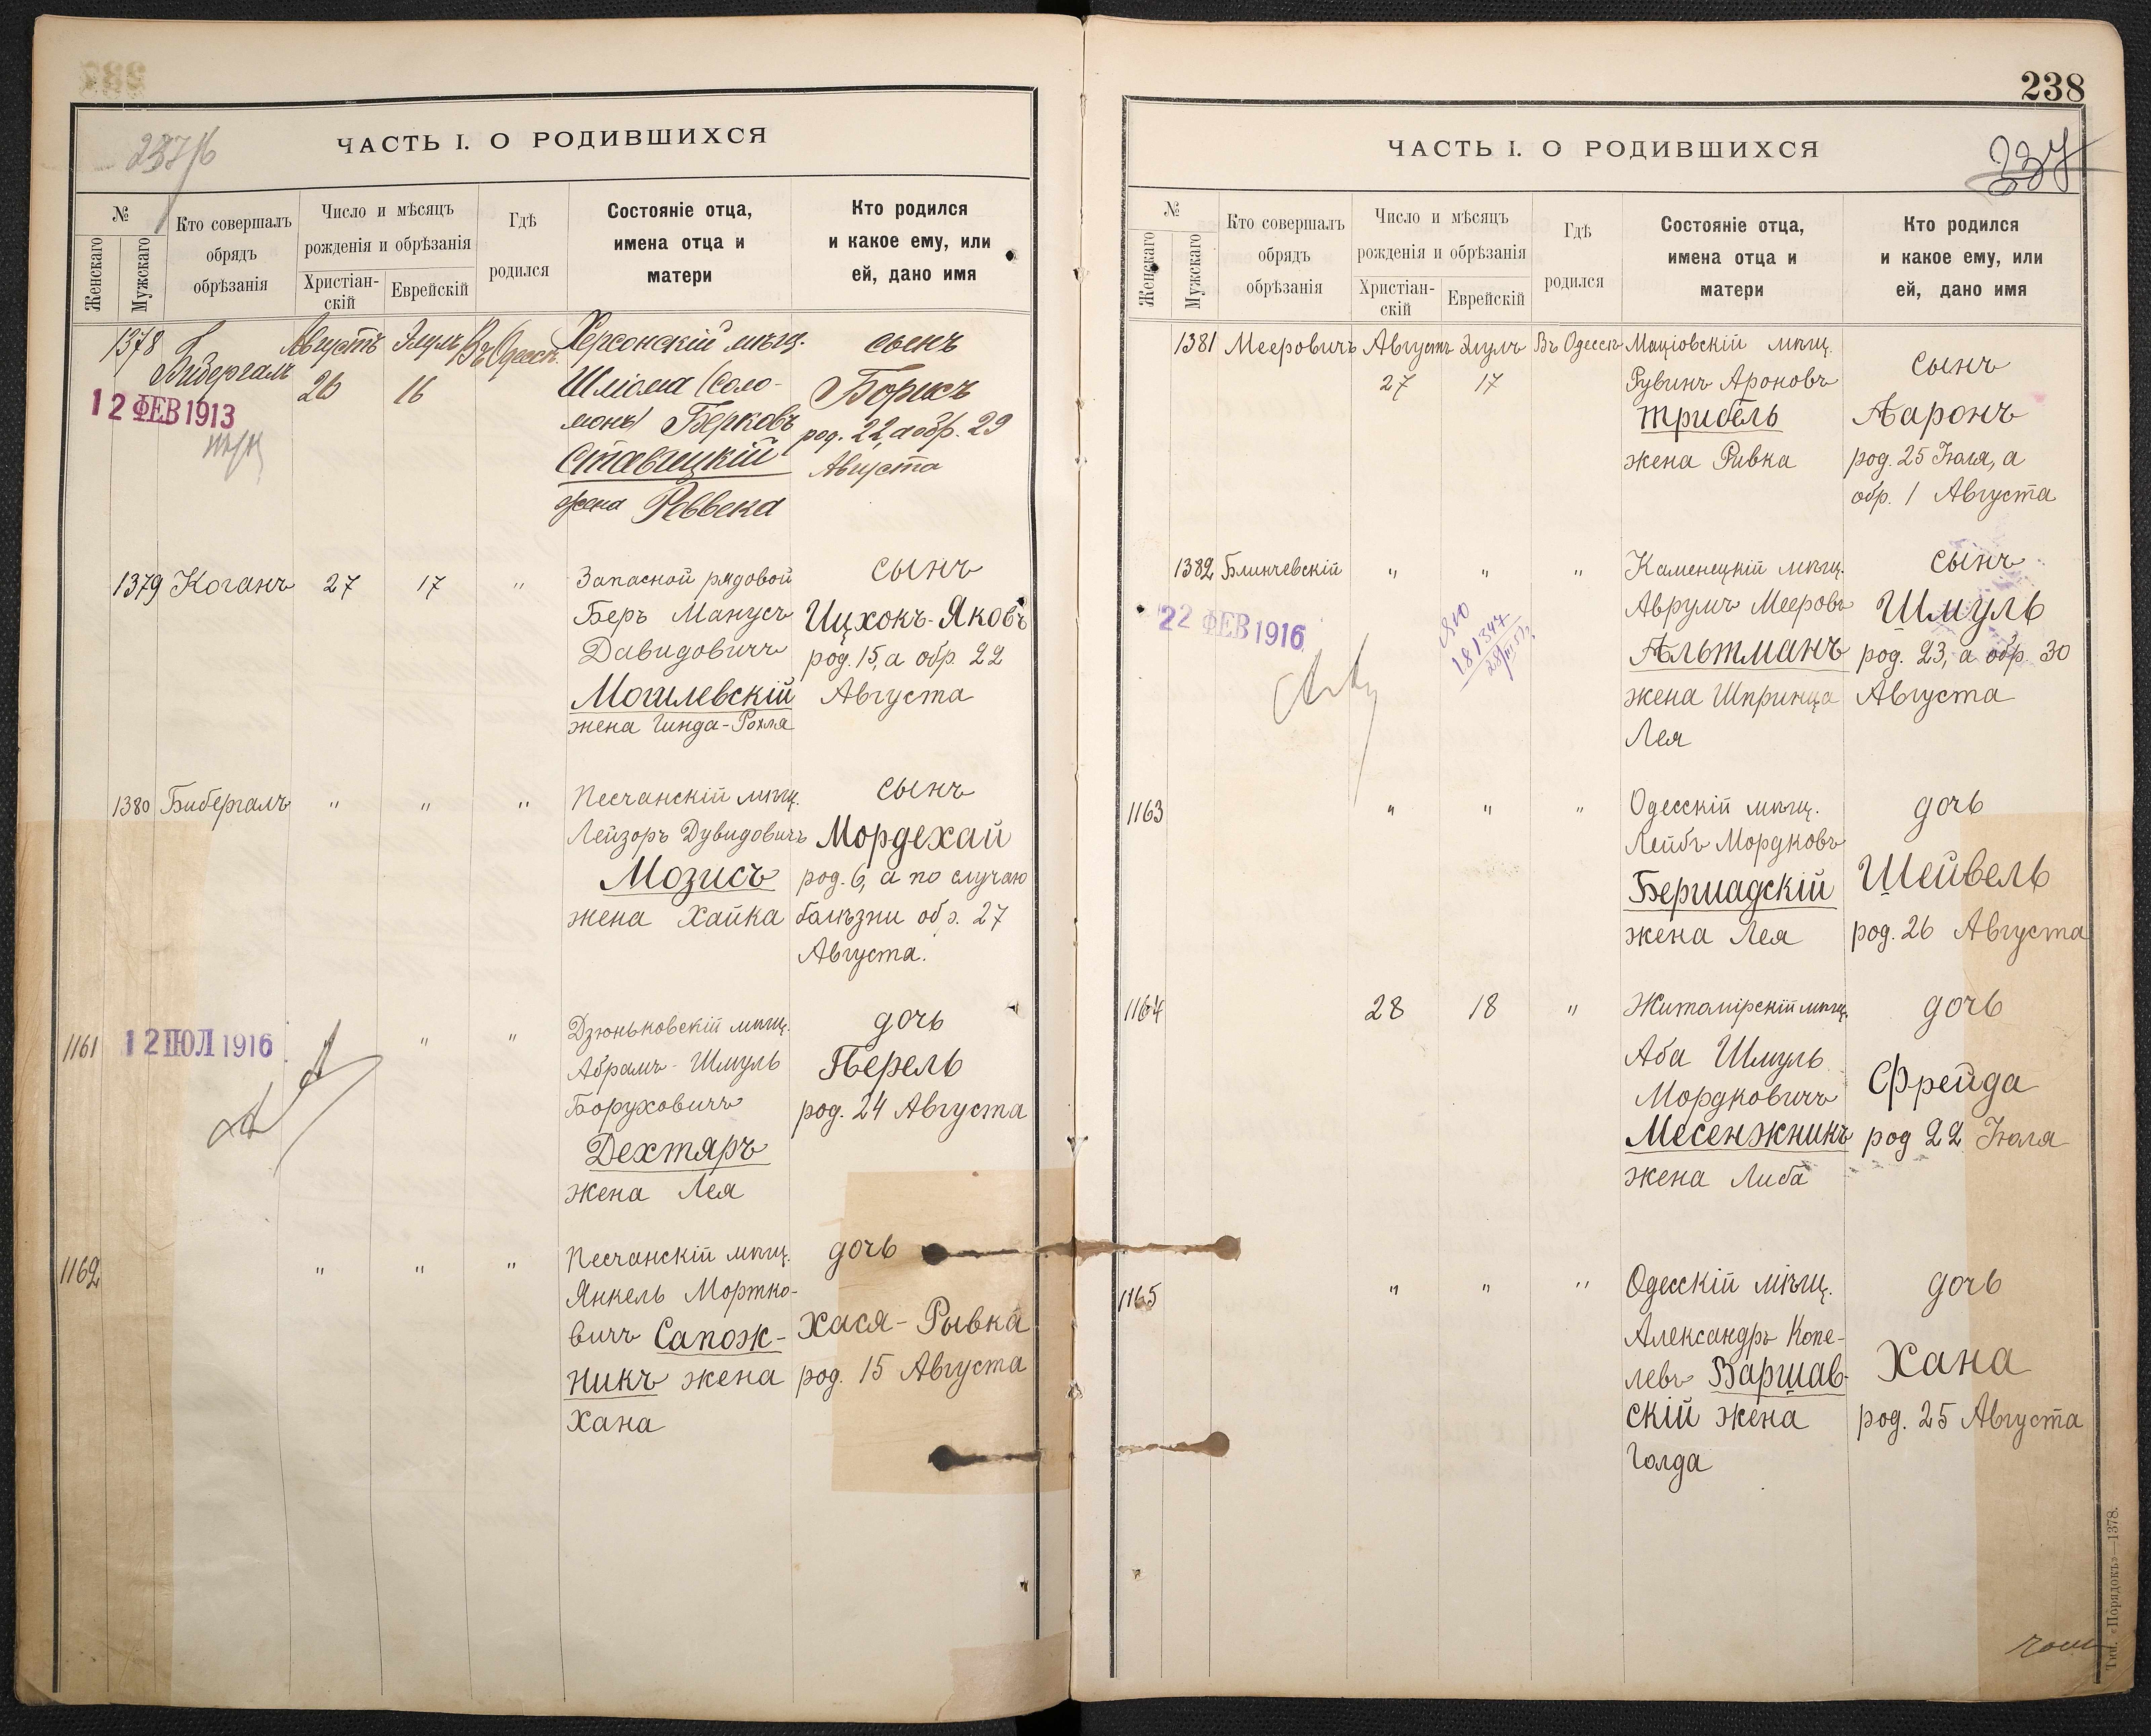 237/б
ЧАСТЬ I. О РОДИВШИХСЯ
№
Женскаго
Мужскаго
Кто совершалъ
обрядъ
обрѣзанія
Число и мѣсяцъ
рожденія и обрѣзанія
Христіан-
скій
Еврейскій
Гдѣ
родился
Состояніе отца,
имена отца и
матери
Кто родился
и какое ему, или
ей, дано имя
1378
Бибергалъ
Августъ
26
Элулъ
16
Въ Одессѣ
Херсонскій мѣщ.
Шліома (Соло-
монъ) Берковъ
Ставицкій
жена Реввека
сынъ
Борисъ
род. 22, а обр. 29
Августа
12 ФЕВ 1913
1379
Коганъ
27
17
"
Запасной рядовой
Беръ Манусъ
Давидовичъ
Могилевскій
жена Гинда-Рохля
сынъ
Ицхокъ-Яковъ
род. 15, а обр. 22
Августа
1380
Бибергалъ
"
"
"
Песчанскій мѣщ.
Лейзоръ Дувидовичъ
Мозисъ
жена Хайка
сынъ
Мордехай
род. 6, а по случаю
болѣзни обр. 27
Августа.
1161
12 ІЮЛ 1916
"
"
Дзюньковскій мѣщ.
Абрамъ-Шмуль
Боруховичъ
Дехтяръ
жена Лея
дочь
Перель
род. 24 Августа
1162
"
"
"
Песчанскій мѣщ.
Янкель Мортко-
вичъ Сапож-
никъ жена
Хана
дочь
Хася-Рывка
род. 15 Августа
238
237
ЧАСТЬ I. О РОДИВШИХСЯ
№
Женскаго
Мужскаго
Кто совершалъ
обрядъ
обрѣзанія
Число и мѣсяцъ
рожденія и обрѣзанія
Христіан-
скій
Еврейскій
Гдѣ
родился
Состояніе отца,
имена отца и
матери
Кто родился
и какое ему, или
ей, дано имя
1381
Мееровичъ
Августъ
27
Элулъ
17
Въ Одессѣ
Маціовскій мѣщ.
Рувинъ Ароновъ
Трибель
жена Ривка
сынъ
Ааронъ
род. 25 Іюля, а
обр. 1 Августа
1382
Блинчевскій
"
"
"
Каменецкій мѣщ.
Аврумъ Мееровъ
Альтманъ
жена Шпринца
Лея
сынъ
Шмуль
род. 23, а обр. 30
Августа
22 ФЕВ 1916
1163
"
"
"
Одесскій мѣщ.
Лейбъ Мордковъ
Бершадскій
жена Лея
дочь
Шейвель
род. 26 Августа
1164
28
18
"
Житомірскій мѣщ.
Аба Шмуль
Мордковичъ
Месенжникъ
жена Либа
дочь
Фрейда
род 22 Іюля
1165
"
"
"
Одесскій мѣщ.
Александръ Копе-
левъ Варшав-
скій жена
Голда
дочь
Хана
род. 25 Августа
Тип. «Порядокъ»—1378.